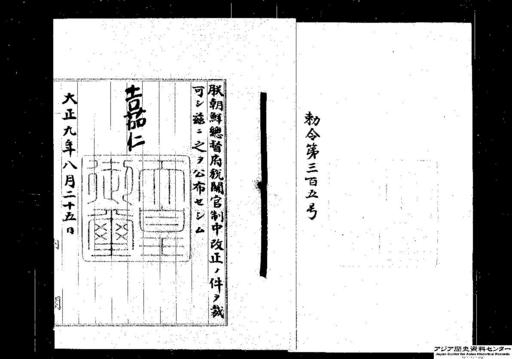 勅令第三百五号
朕朝鮮總督府税關官制中改正ノ件ヲ裁
可シ茲ニ之ヲ公布セシム
嘉仁
天皇
御璽
大正九年八月二十五日
アジア歴史資料センター
Japan Center for Asian Historical Records